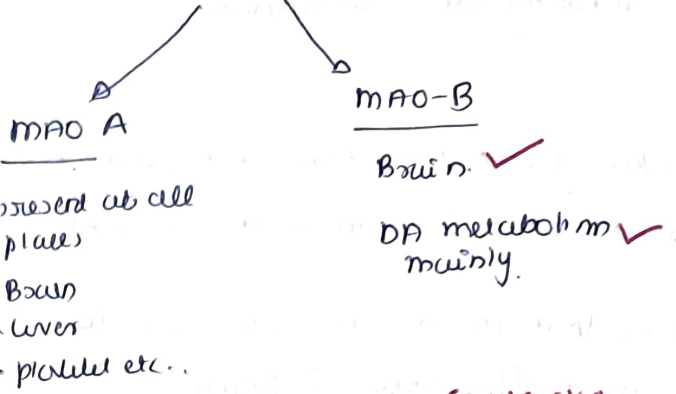 MAO A
present at all
places
Brain
liver
platelet etc..
MAO-B
Brain.
DA metabolism
mainly.